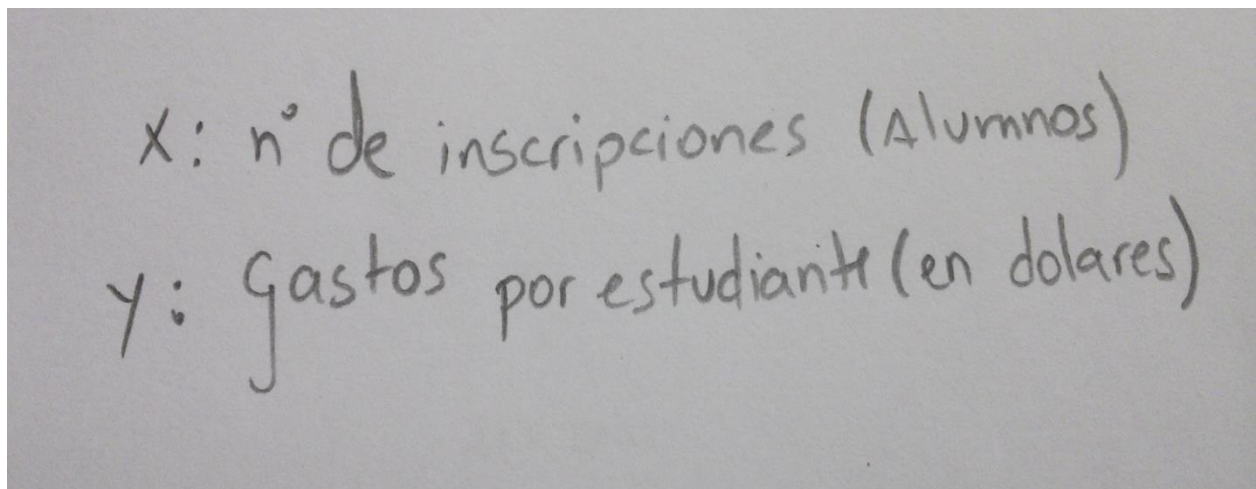 X: n° de inscripciones (Alumnos)
y: Gastos por estudiante (en dolares)